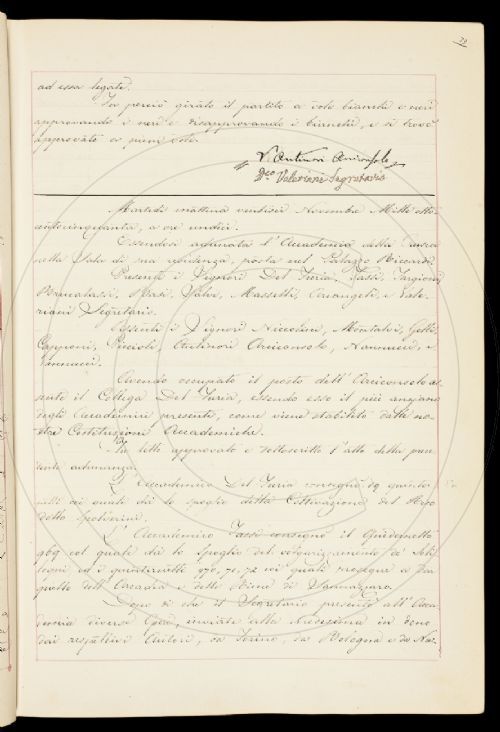 ad essa legati.
Fu perciò girato il partito a voti bianchi e neri
approvando i neri e disapprovando i bianchi, e si trovò
approvato a pieni voti.
V. Antinori Arciconsolo
Valeriani Segretario
Martedì mattina ventisei Novembre Mille otto
centocinquanta, a ore undici.
Essendosi adunata l'Accademia della Crusca
nella Sala di sua residenza, posta nel Palazzo Riccardi,
Presenti i Signori Del Furia, Tassi, Targioni,
Brucalassi, Masselli, Arcangeli, e Vale-
riani Segretario.
Assenti i Signori Niccolini, Montalvi,
Capponi, Antinori Arciconsolo, Nannucci, e
Vannucci.
Avendo occupato il posto dell'Arciconsolo as-
sente il Collega Del Furia, essendo esso il più anziano
degli Accademici presenti, come viene stabilito dalle no-
stre Costituzioni Accademiche.
Fu letto approvato e sottoscritto l'atto della prece-
dente adunanza.
L'Accademico Del Furia consegnò 19 quinter-
nelli coi quali dà lo spoglio della Coltivazione del
detto Spolverini.
L'Accademico Tassi consegnò il Quadernetto
969 col quale dà lo Spoglio del volgarizzamento
ed i quinternetti 970, 71, 72 coi quali
dell'Arcadia e delle Rime di Sannazzaro.
Dopo di che il Segretario presentò all'Acca-
demia diverse Opere inviate alla medesima in dono
dai rispettivi Autori, da Torino, da Bologna e da Na-